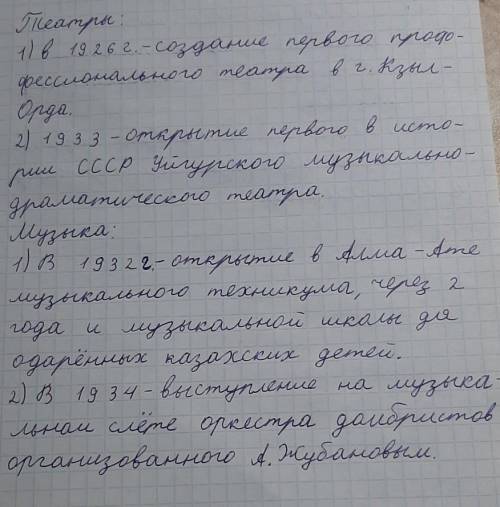 Театры:
1) в 1926 г. - создание первого профо-
фессионального театра в г. Кзыл-
Орда.
2) 1933 - открытие первого в исто-
рии СССР Уйгурского музыкально-
драматического театра.
Музыка:
1) В 1932 г. - открытие в Алма-Ате
музыкального техникума, через 2
года и музыкальной школы для
одарённых казахских детей.
2) В 1934 - выступление на музыка-
льнам слёте оркестра домбристов
организованного А. Жубановым.